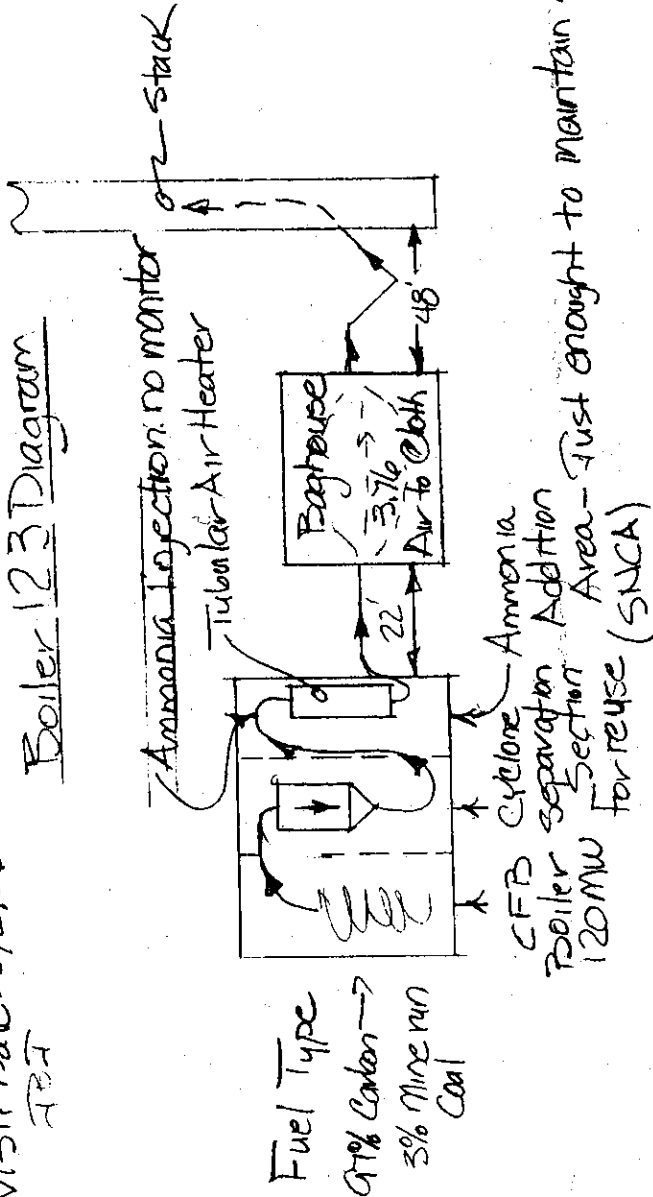 Visit
Boiler 123 Diagram
Ammonia Injection: no monitor
Tubular Air Heater
Stack
Baghouse
3.76 →
Air to Cloth
22'
48'
Fuel Type
97% Carbon →
3% Mine run
Coal
CFB
Boiler
120 MW
Cyclone
Separation
Section
Ammonia
Addition
Area - Just enought to maintain
for reuse (SNCA)